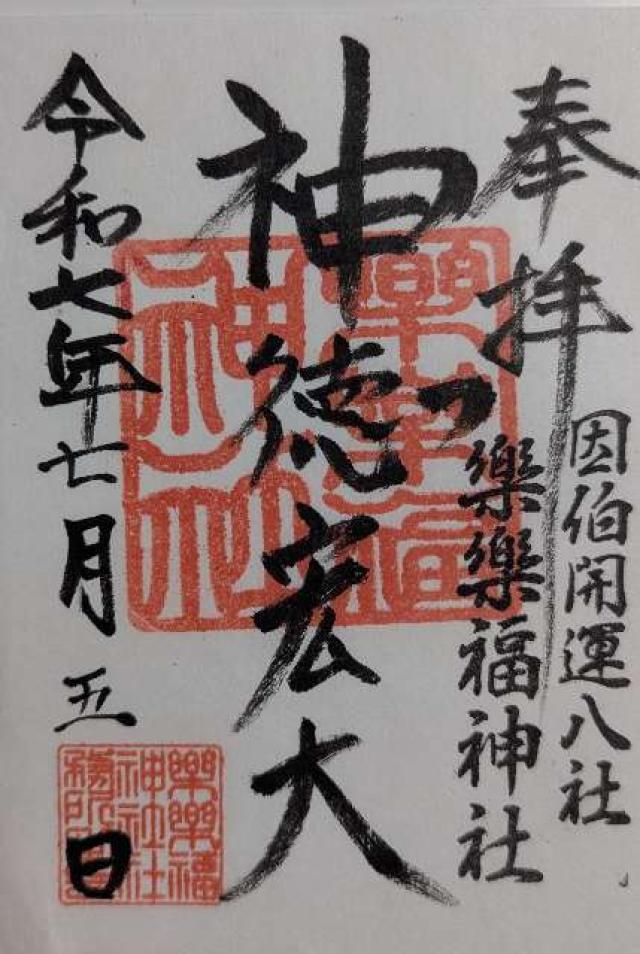 奉拝
因伯開運八社
樂樂福神社
神徳宏大
令和七年七月五日
樂樂福
神社
樂樂福
神社社
務所